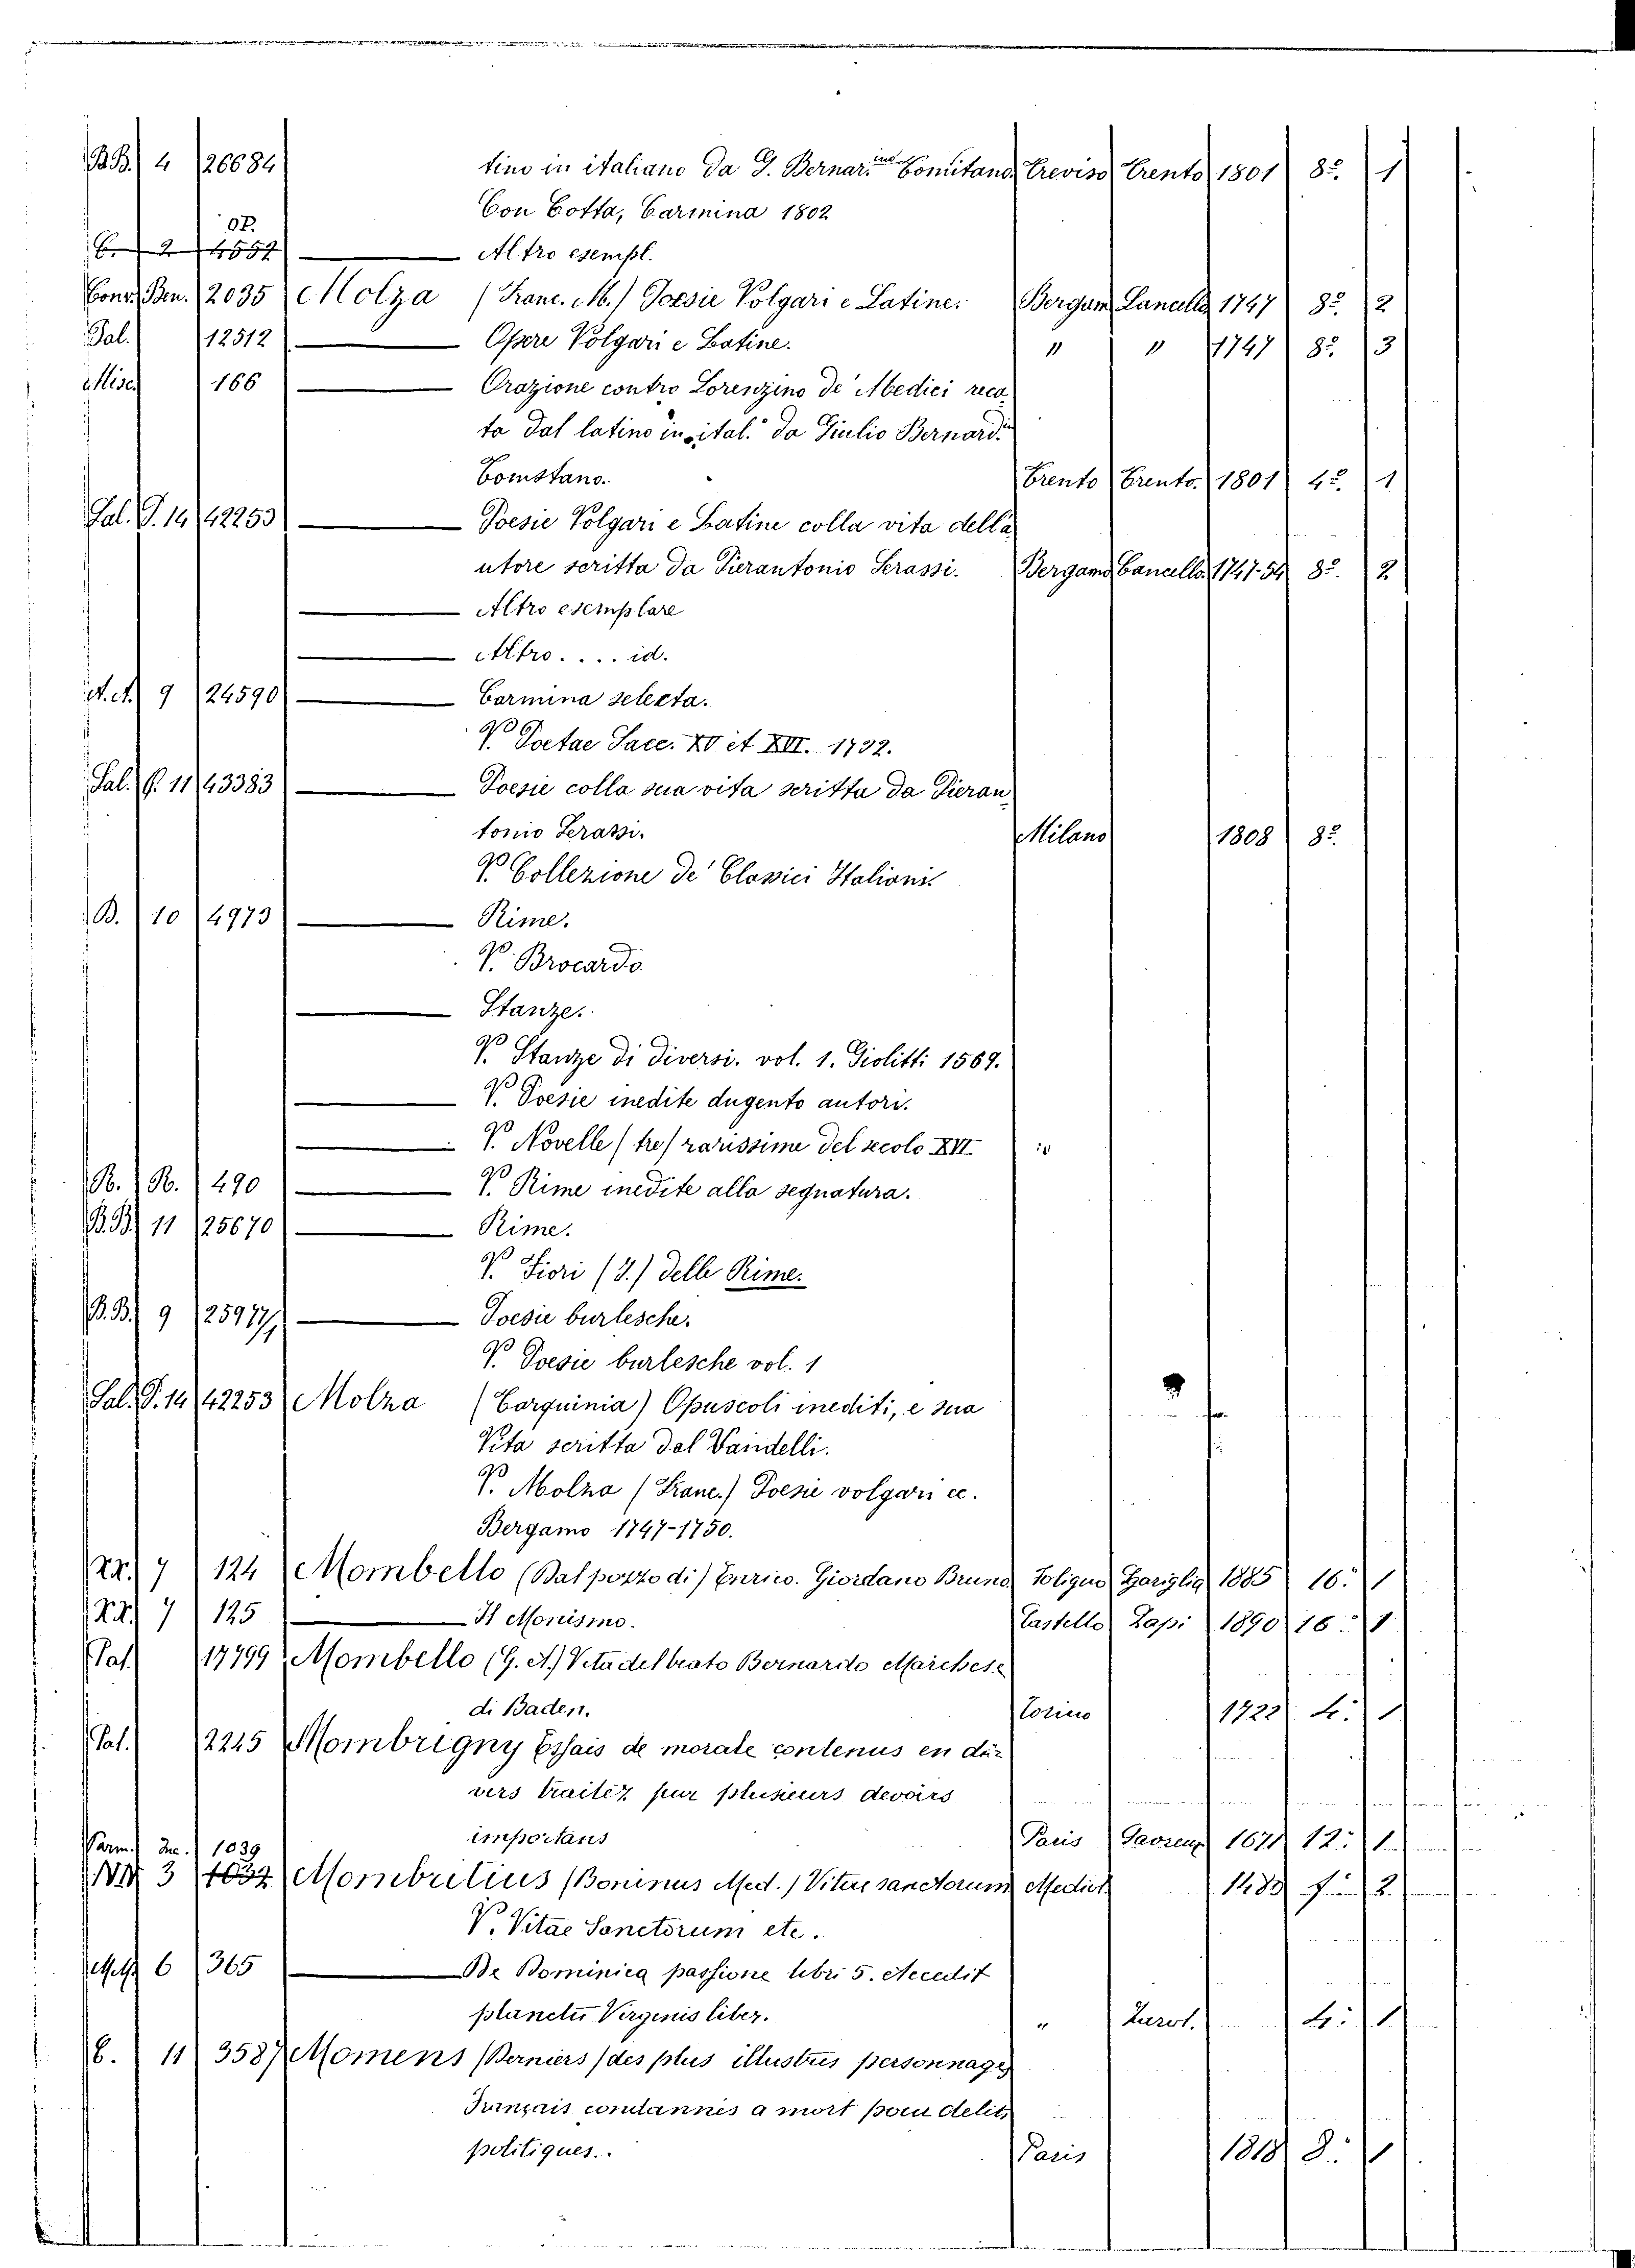 B.B. 4 26684 tino in italiano da G. Bernar.ino Comitano Treviso Trento 1801 8.° 1
Con Cotta, Carmina 1802
OP.
C. 2 4557 ——— Altro esempl.
Cons. Ben. 2035 Molza (Franc. M.) Poesie Volgari e Latine. Bergam Lancello 1747 8.° 2
Pal. 12512 ——— Opere Volgari e Latine. " " 1747 8.° 3
Misc. 166 ——— Orazione contro Lorenzino de' Medici reca
ta dal latino in ital.° da Giulio Bernard.in
Comitano. Trento Trento. 1801 4.° 1
Sal. P. 14 42253 ——— Poesie Volgari e Latine colla vita della
utore scritta da Pierantonio Serassi. Bergamo Lancello. 1747-54 8.° 2
——— Altro esemplare
——— Altro . . . . id.
A.A. 9 24590 ——— Carmina selecta.
V. Poetae Saec. XV et XVI. 1732.
Sal. P. 11 43383 ——— Poesie colla sua vita scritta da Pieran
tonio Serassi. Milano 1808 8.°
V. Collezione de' Classici Italiani.
B. 10 4973 ——— Rime.
V. Brocardo
——— Stanze.
V. Stanze di diversi. vol. 1. Giolitti 1569.
——— V. Poesie inedite dugento autori.
——— V. Novelle (tre) rarissime del secolo XVI
R. R. 490 ——— V. Rime inedite alla segnatura.
B.B. 11 25670 ——— Rime.
V. Fiori (I.) delle Rime.
B.B. 9 25977/1 ——— Poesie burlesche.
V. Poesie burlesche vol. 1
Sal. P. 14 42253 Molza (Tarquinia) Opuscoli inediti, e sua
Vita scritta dal Vandelli.
V. Molza (Franc.) Poesie volgari ec.
Bergamo 1747-1750.
XX. 7 124 Mombello (Dal pozzo di) Enrico. Giordano Bruno Foligno Gariglia 1885 16.° 1
XX. 7 125 ——— Il Monismo. Castello Lapi 1890 16.° 1
Pal. 17799 Mombello (G. A.) Vita del beato Bernardo Marchese
di Baden. Torino 1722 4.° 1
Pal. 2245 Mombrigny Essais de morale contenus en di-
vers traitez sur plusieurs devoirs
importans Paris 1671 12.° 1
Parm. Inc. 1039
NN 3 1032 Mombritius (Boninus Med.) Vitae sanctorum Mediol. 148 f.° 2.
V. Vitae Sanctorum etc.
6 365 ——— De Dominica passione libri 5. Accedit
planctus Virginis liber. " Zarot. 4.° 1
C. 11 3587 Momens (Derniers) des plus illustres personnages
Français condannés a mort pour delits
politiques. Paris 1818 8.° 1